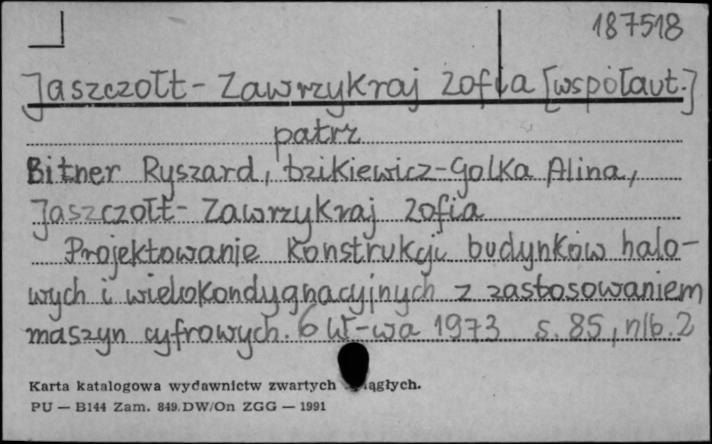 187518
Jaszczołt - Zawrzykraj Zofia [współaut.]
patrz
Bitner Ryszard, Dzikiewicz-Golka Alina,
Jaszczołt - Zawrzykraj Zofia
Projektowanie konstrukcji budynków halo-
wych i wielokondygnacyjnych z zastosowaniem
maszyn cyfrowych. W-wa 1973 s. 85, nlb. 2
Karta katalogowa wydawnictw zwartych
PU — B144 Zam. 849. DW/On ZGG — 1991